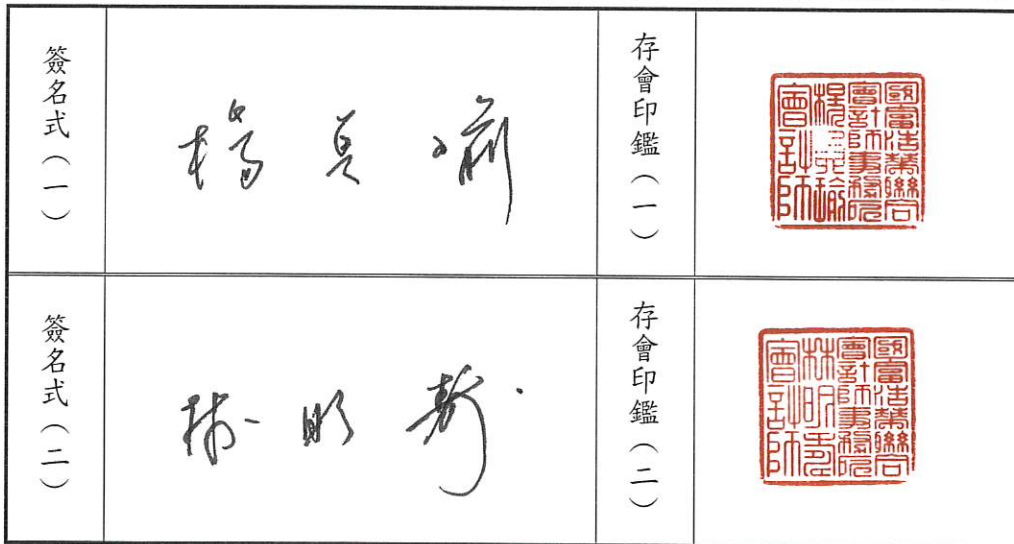 簽名式（一）
楊貞瑜
存會印鑑（一）
國富浩華聯合
會計師事務所
楊貞瑜
會計師
簽名式（二）
林明壽
存會印鑑（二）
國富浩華聯合
會計師事務所
林明壽
會計師